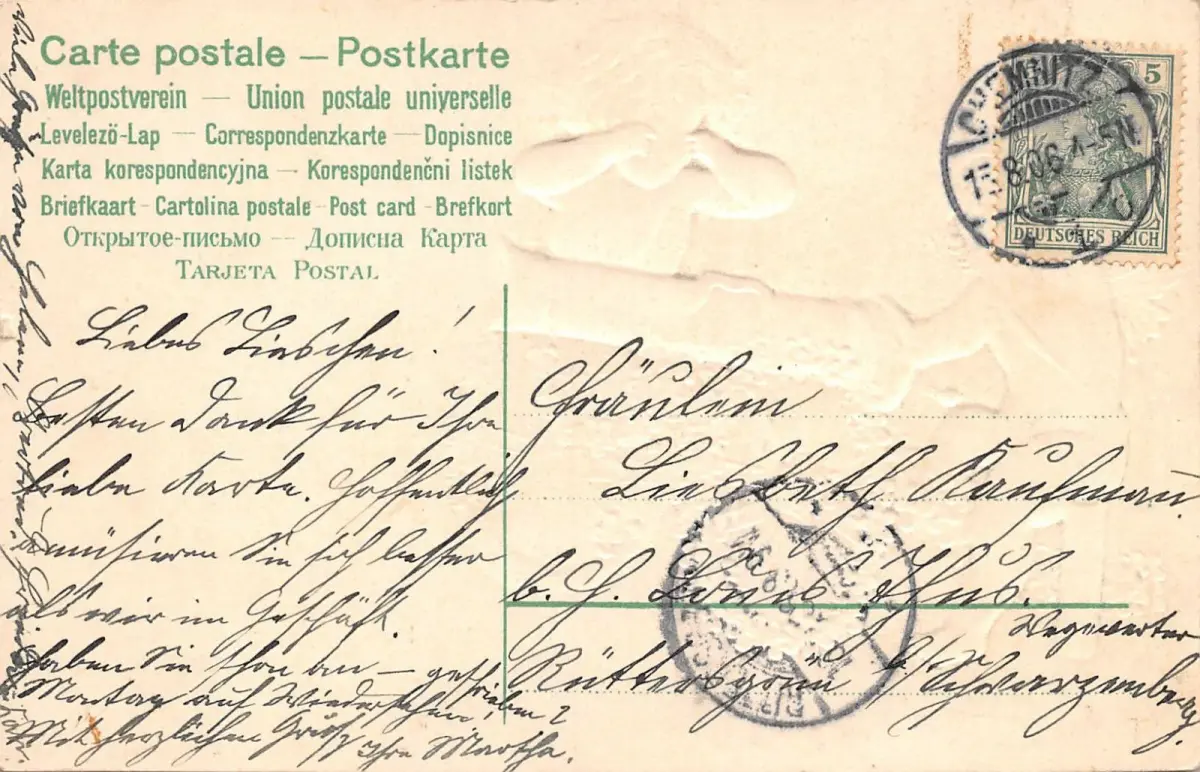 Carte postale — Postkarte
Weltpostverein — Union postale universelle
Levelezö-Lap — Correspondenzkarte — Dopisnice
Karta korespondencyjna — Korespondenčni listek
Briefkaart - Cartolina postale - Post card - Brefkort
Открытое-письмо — Дописна Карта
Tarjeta Postal
CHEMNITZ
8.06. 4-5N.
5
DEUTSCHES REICH
Liebes Lieschen!
Besten Dank für Ihre
liebe Karte. Hoffentlich
amüsieren Sie sich besser
als wir im Geschäft.
Haben Sie schon an — geschrieben?
Montag auf Wiedersehen!
Mit herzlichen Gruß
Ihre Martha.
Viele Grüße von
Fräulein
Liesbeth Kaufmann
b. H. Louis
Wegewärter
Rittersgrün b/ Schwarzenberg.